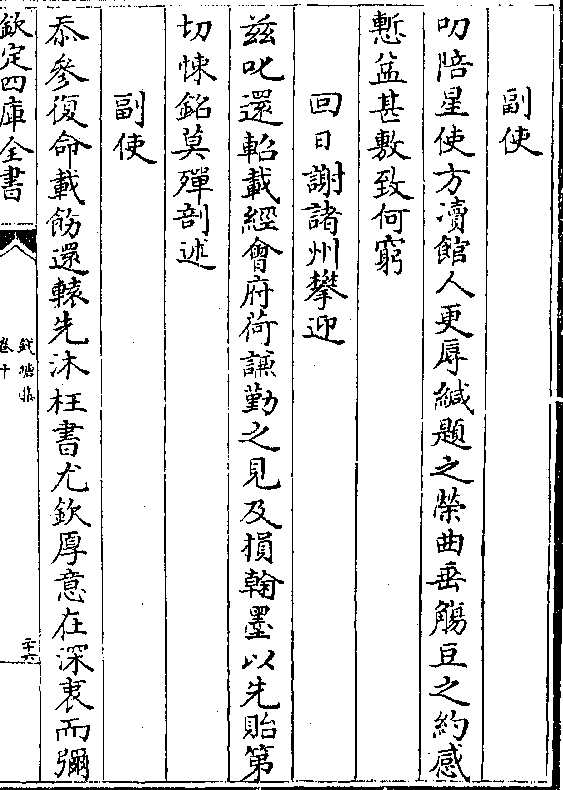 副使
叨陪星使方瀆館人更辱緘題之榮曲垂觴豆之約感
慙益甚敷致何窮
回日謝諸州攀迎
兹叱還軺載經會府荷謙勤之見及損翰墨以先貽第
切悚銘莫殫剖述
副使
忝參復命載飭還轅先沐枉書尤欽厚意在深衷而彌
欽定四庫全書
卷十
二十六